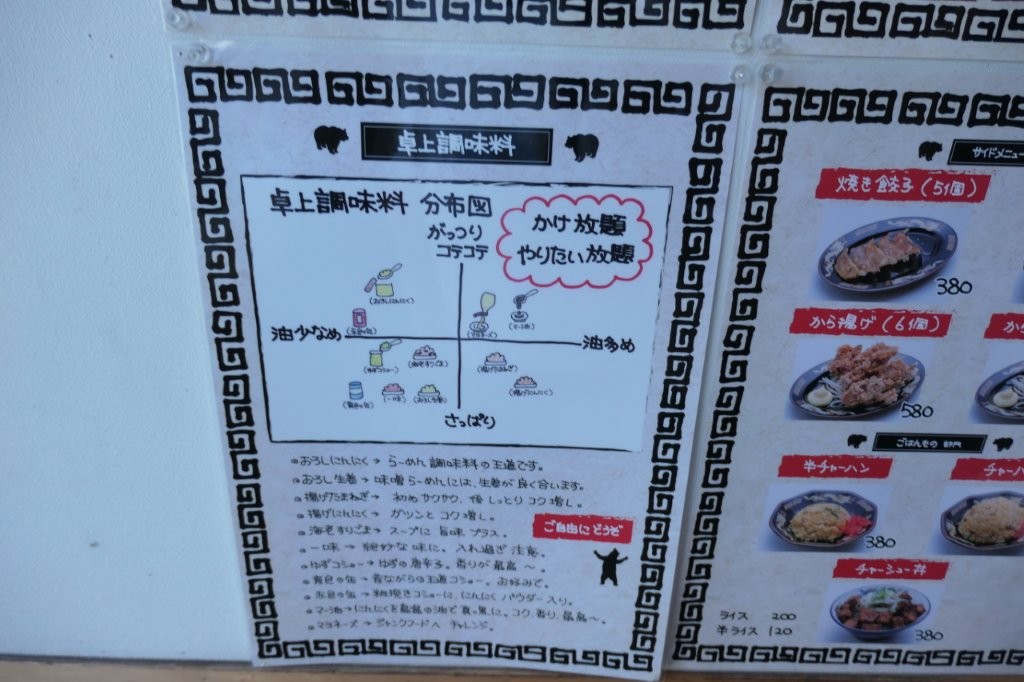 卓上調味料
卓上調味料 分布図
かけ放題
やりたい放題
がっつり
コテコテ
(おろしにんにく)
(赤色の缶)
(マヨネーズ)
(マー油)
油少なめ
油多め
(ゆずコショー)
(海老すりごま)
(揚げたまねぎ)
(青色の缶)
(一味)
(おろし生姜)
(揚げにんにく)
さっぱり
おろしにんにく→らーめん調味料の王道です。
おろし生姜→味噌らーめんには、生姜が良く合います。
揚げたまねぎ→初めサクサク、後しっとりコク増し。
揚げにんにく→ガツンとコク増し。
海老すりごま→スープに旨味プラス。
一味→絶妙な味に。入れ過ぎ注意。
ゆずコショー→ゆずの唐辛子。香りが最高〜。
青色の缶→昔ながらの王道コショー。お好みで。
赤色の缶→粗挽きコショーに、にんにくパウダー入り。
マー油→にんにくを
の油で真っ黒に。コク、香り、最高〜。
マヨネーズ→ジャンクフードへチャレンジ。
ご自由にどうぞ
サイドメニュー
焼き餃子(5個)
380
から揚げ(6個)
580
か
ごはんもの 部門
半チャーハン
380
チャーハ
チャーシュー丼
380
ライス 200
半ライス 120